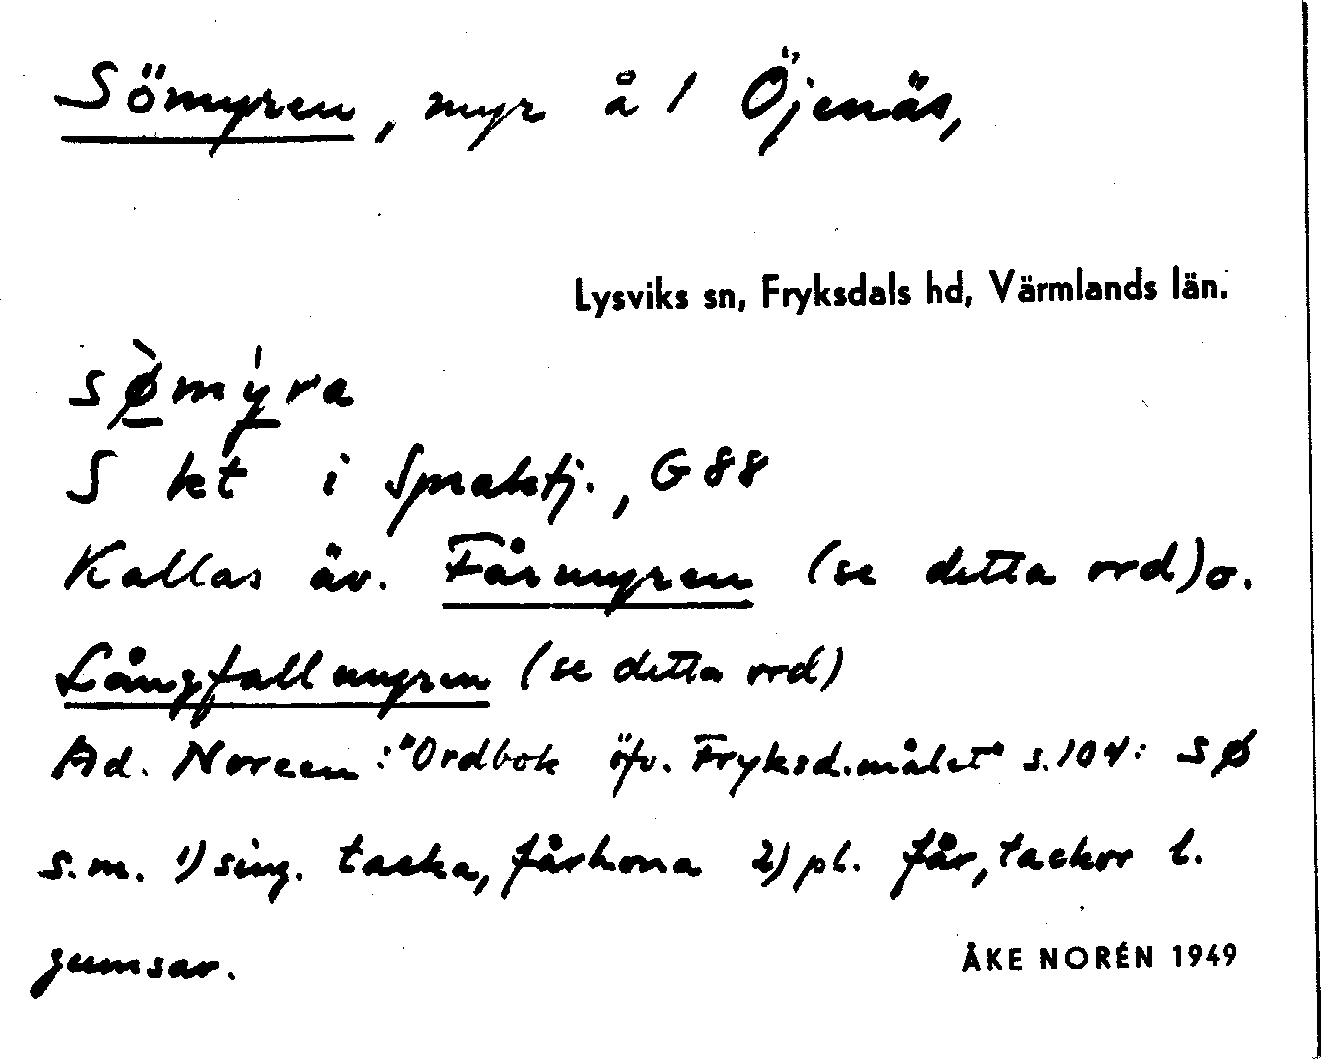 Sömyren, myr å 1 Öjenäs,
Lysviks sn, Fryksdals hd, Värmlands län.
sø̀mýra
S kt i Spraktj., G 88
Kallas äv. Fårmyren (se detta ord) o.
Långfallmyren (se detta ord)
Ad. Noreen: "Ordbok öfv. Fryksd.målet" s. 104: sø
s.m. 1) sing. tacka, fårhona 2) pl. får, tackor l.
gumsar.
ÅKE NORÉN 1949